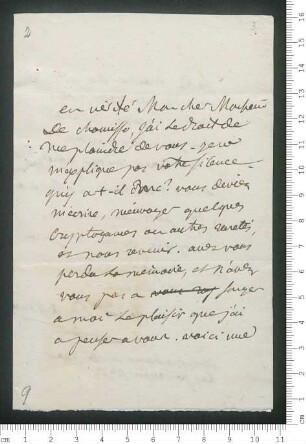 2
en vérité Mon cher Monsieur
de chamisso, j'ai le droit de
me plaindre de vous - je ne
m'explique pas votre silence -
qu'y a-t-il donc? vous deviez
m'écrire, m'envoyer quelques
Cryptogames ou autres raretés,
et nous revenir. avez vous
perdu la mémoire, et n'avez
vous pas a songer
a moi le plaisir que j'ai
a penser a vous. voici une
9